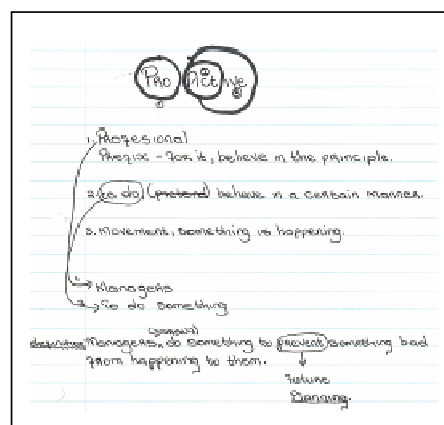 Pro Active
1. Profesional
Prefix - for it, believe in the principle.
2. to do (pretend) behave in a certain manner.
3. Movement, something is happening.
Managers
to do something
Managers, do something to prevent something bad
from happening to them.
Future
Planning.